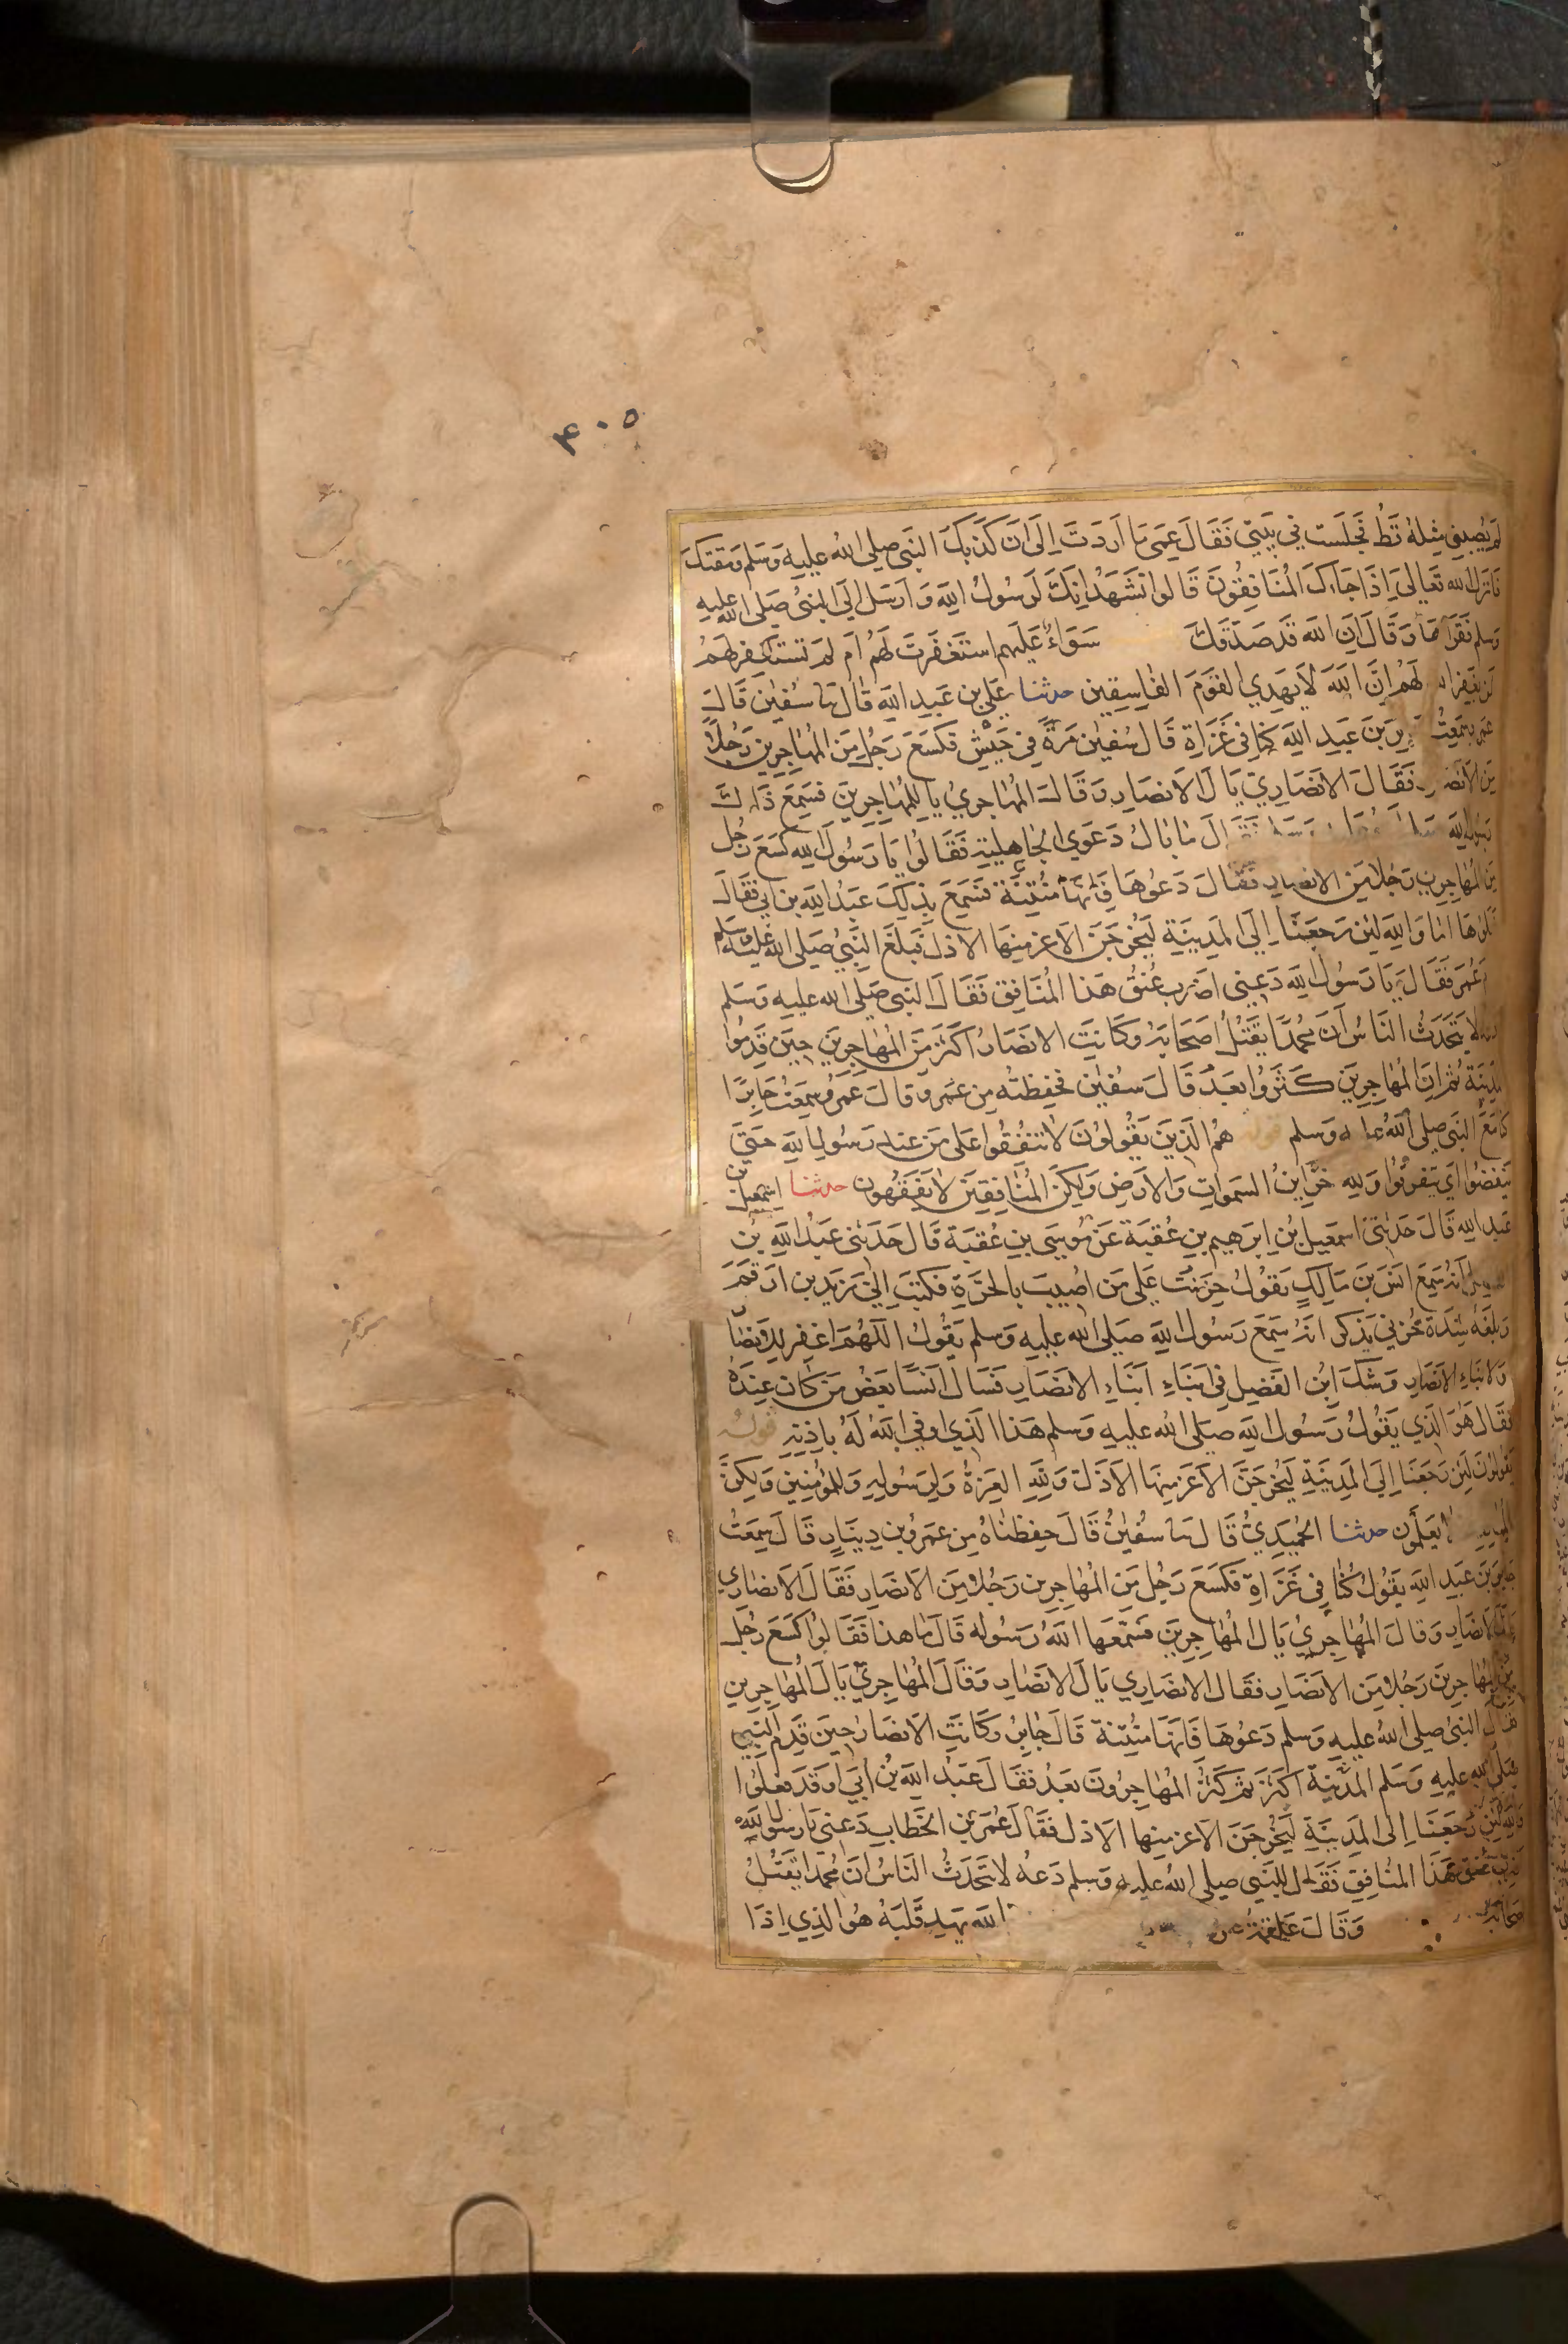 ۴۰۵
لم يصبني مثله قط فجلست في بيتي فقال عمي ما اردت الى ان كذبك النبي صلى الله عليه وسلم ومقتك
فانزل الله تعالى اذا جاءك المنافقون قالوا نشهد انك لرسول الله وارسل الي النبي صلى الله عليه
وسلم فقراها وقال ان الله قد صدقك سواء عليهم استغفرت لهم ام لم تستغفر لهم
لن يغفر الله لهم ان الله لا يهدي القوم الفاسقين حدثنا علي بن عبد الله قال ثنا سفين قال
عمرو سمعت بن عبد الله كنا في غزاة قال سفين مرة في جيش فكسع رجل من المهاجرين رجلا
من الانصار فقال الانصاري يال الانصار وقال المهاجري يا للمهاجرين فسمع ذلك
رسول الله صلى فقال ما بال دعوى الجاهلية فقالوا يا رسول الله كسع رجل
من المهاجرين رجلا من الانصار فقال دعوها فانها منتنة فسمع بذلك عبد الله بن ابي فقال
اما والله لئن رجعنا الى المدينة ليخرجن الاعز منها الاذل فبلغ النبي صلى الله عليه وسلم
عمر فقال يا رسول الله دعني اضرب عنق هذا المنافق فقال النبي صلى الله عليه وسلم
لا يتحدث الناس ان محمدا يقتل اصحابه وكانت الانصار اكثر من المهاجرين حين قدموا
المدينة ثم ان المهاجرين كثروا بعد قال سفين فحفظته من عمرو قال عمرو سمعت جابرا
كنا مع النبي صلى الله عليه وسلم قوله هم الذين يقولون لا تنفقوا على من عند رسول الله حتى
ينفضوا اي يتفرقوا ولله خزاين السموات والارض ولكن المنافقين لا يفقهون حدثنا اسمعيل بن
عبد الله قال حدثني اسمعيل بن ابرهيم بن عقبة عن موسى بن عقبة قال حدثني عبد الله بن
انه سمع انس بن مالك يقول حزنت على من اصيب بالحرة فكتب الي زيد بن ارقم
وبلغه شدة حزني يذكر انه سمع رسول الله صلى الله عليه وسلم يقول اللهم اغفر للانصار
ولابناء الانصار وشك ابن الفضيل في ابناء ابناء الانصار فسال انسا بعض من كان عنده
فقال هو الذي يقول رسول الله صلى الله عليه وسلم هذا الذي اوفى الله له باذنه قوله
يقولون لئن رجعنا الى المدينة ليخرجن الاعز منها الاذل ولله العزة ولرسوله وللمؤمنين ولكن
لا يعلمون حدثنا الحميدي قال ثنا سفين قال حفظناه من عمرو بن دينار قال سمعت
جابر بن عبد الله يقول كنا في غزاة فكسع رجل من المهاجرين رجلا من الانصار فقال الانصاري
يال الانصار وقال المهاجري يال المهاجرين فسمعها الله رسوله قال ما هذا فقالوا كسع رجل
من المهاجرين رجلا من الانصار فقال الانصاري يال الانصار وقال المهاجري يال المهاجرين
فقال النبي صلى الله عليه وسلم دعوها فانها منتنة قال جابر وكانت الانصار حين قدم النبي
صلى الله عليه وسلم المدينة اكثر ثم كثر المهاجرون بعد فقال عبد الله بن ابي اوقد فعلوا
والله لئن رجعنا الى المدينة ليخرجن الاعز منها الاذل فقال عمر بن الخطاب دعني يا رسول الله
اضرب عنق هذا المنافق فقال النبي صلى الله عليه وسلم دعه لا يتحدث الناس ان محمدا يقتل
اصحابه وقال علقمة عن الله يهد قلبه هو الذي اذا